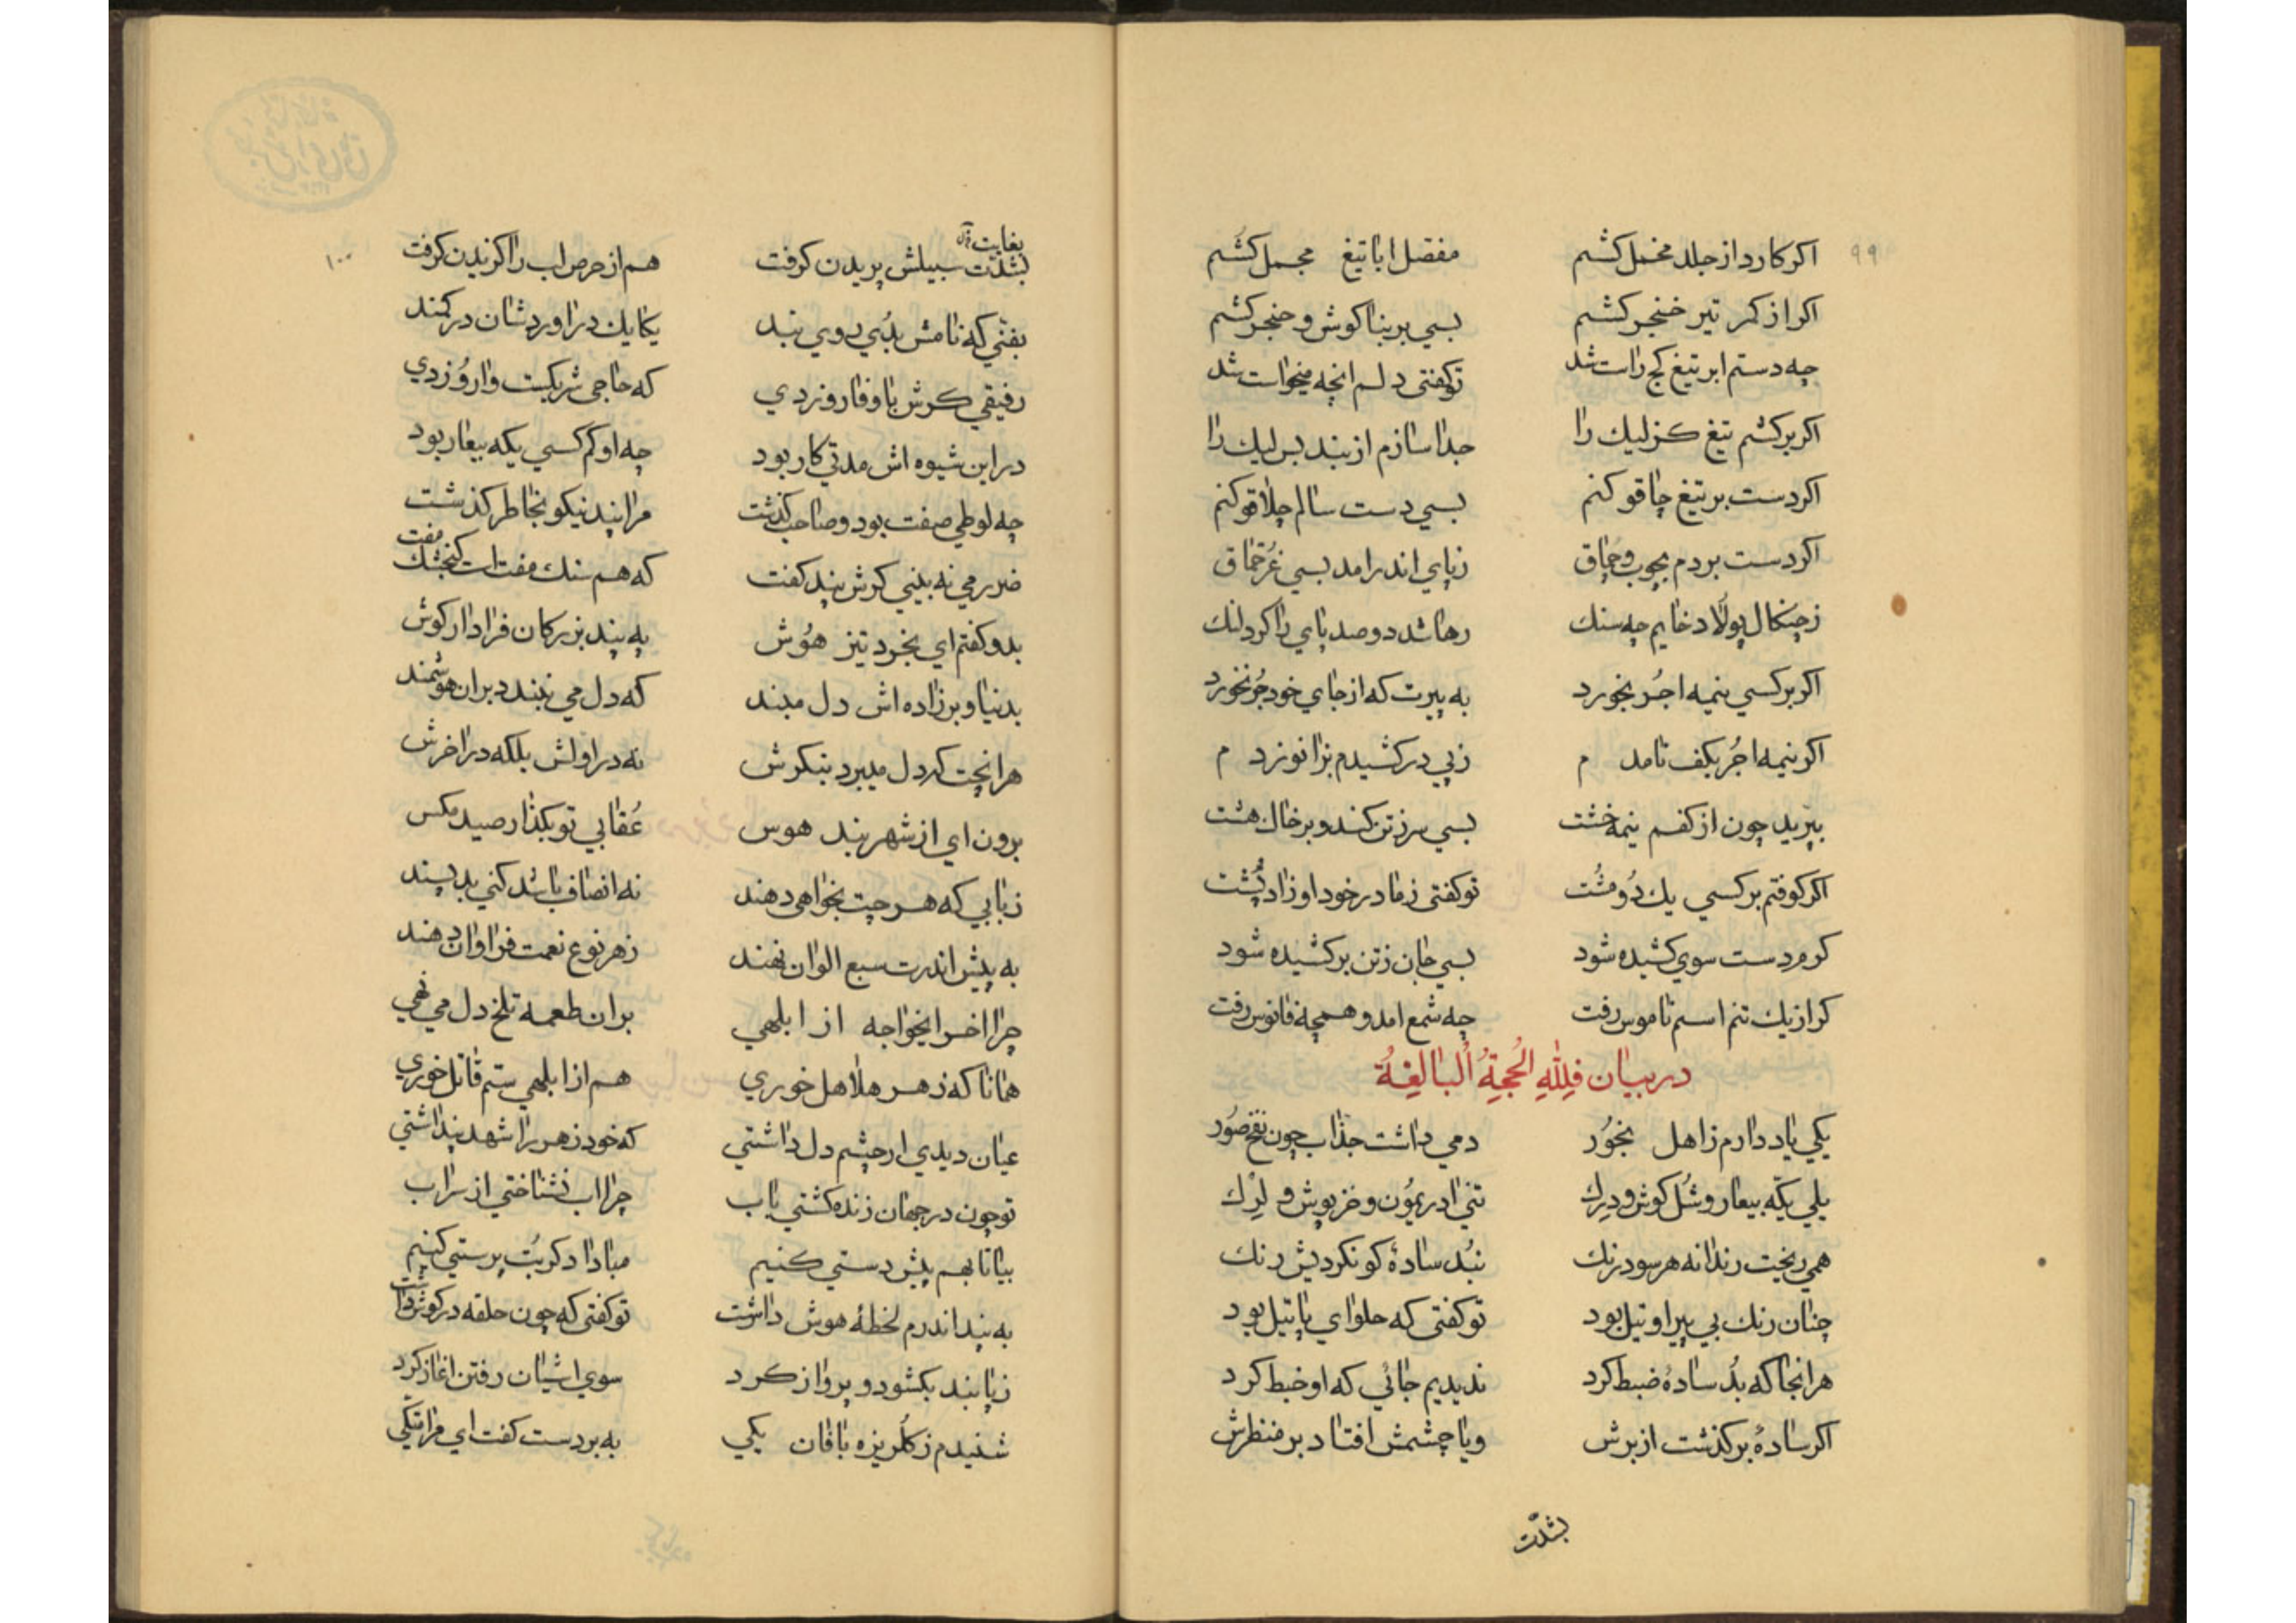 ۹۹
اکر کارد از جلد مخمل کشم مفصل اباتیغ مجمل کشم
اکر از کمر تیر خنجر کشم بسی بر بنا کوش و حنجر کشم
چه دستم ابر تیغ کج راست شد توکفتی دلم انچه میخواست شد
اکر برکشم تیغ کزلیك را جدا سازم از بند بس لیك را
اکر دست بر تیغ چاقو کنم بسی دست سالم چلاقو کنم
اکر دست بردم بچوب و چماق زپای اندر امد بسی
زچنکال پولاد خایم چه سنك رها شد دوصد پای را کرد لنك
اکر بر کسی نیمه اجر بخورد به پیرت که از جای خود جُم نخورد
اکر نیمه اجُر بکف نامدم زپی در کشیدم بزانو زدم
بپرید چون از کفم نیمه خشت بسی سر زتن کند و بر خاك هشت
اکر کوفتم بر کسی یك دُو مشُت توکفتی زمادر خود او زاد پُشت
کرم دست سوی کشیده شود بسی جان زتن برکشیده شود
کر از یك تنم اسم ناموس رفت چه شمع امد و همچه فانوس رفت
در بیان فَلِلّٰهِ الْحُجةُ اُلبالِغةُ
یکی یاد دارم زاهل بخوُر دمی داشت جذاب چون نفخ صوُر
یلی یکّه بیعار و شُل کوش و دِرِك تنی ادریموُن و خز پوش و لِرْك
همی ریخت رندانه هر سو درنك نبُد سادۀ کو نکردیش رنك
چنان رنك بی پیر او تیل بود توکفتی که حلوای پاتیل بود
هر انجا که بدُ سادۀ ضبط کرد ندیدیم جائی که او خبط کرد
اکر سادۀ برکذشت از برش ویا چشمش افتاد بر منظرش
بشدّت
۱۰۰
بغایت
بشدّت سبیلش پریدن کرفت هم از حرص لب را کزیدن کرفت
بفنّی که نامش بدُی روی بند یکایك در اوردشان در کمند
رفیقی کرش با وفا رو زدی که حاجی شریکست وارُو زدی
در این شیوه اش مدتی کار بود چه او کم کسی یکه بیعار بود
چه لوطی صفت بود و صاحب کذشت مرا پند نیکو بخاطر کذشت
ضرر می نه بینی کرش پند کفت که هم سنك مفت است کنجشك مفت
بدو کفتم ای بخرد تیز هوُش به پند بزرکان فرا دار کوش
بدنیا و بر زاده اش دل مبند که دل می نبندد بر ان هوشمند
هر انچت که دل میبرد بنکرش نه در اولش بلکه در اخرش
برون ای از شهر بند هوس عُقابی تو بکذار صید مکس
زبابی که هر چیت بخواهی دهند نه انصاف باشد کنی بد پسند
به پیش اندرت سبع الوان نهند زهر نوع نعمت فراوان دهند
چرا اخر ایخواجه از ابلهی بران طعمه تلخ دل می نهی
همانا که زهر هلاهل خوری هم از ابلهی ستم قاتل خوری
عیان دیدی ار چشم دل داشتی که خود زهر را شهد پنداشتی
تو چون در جهان زنده کشتی باب چرا اب نشناختی از سراب
بیا تا بهم پیش دستی کنیم مبادا دکر بُت پرستی کنیم
به پند اندرم لحظۀ هوش داشت توکفتی که چون حلقه در کوش داشت
زپا بند بکشود و پرواز کرد سوی اشیان رفتن اغاز کرد
شنیدم زکُلریزه بافان یکی به بر دست کفت ای مرا متّکی